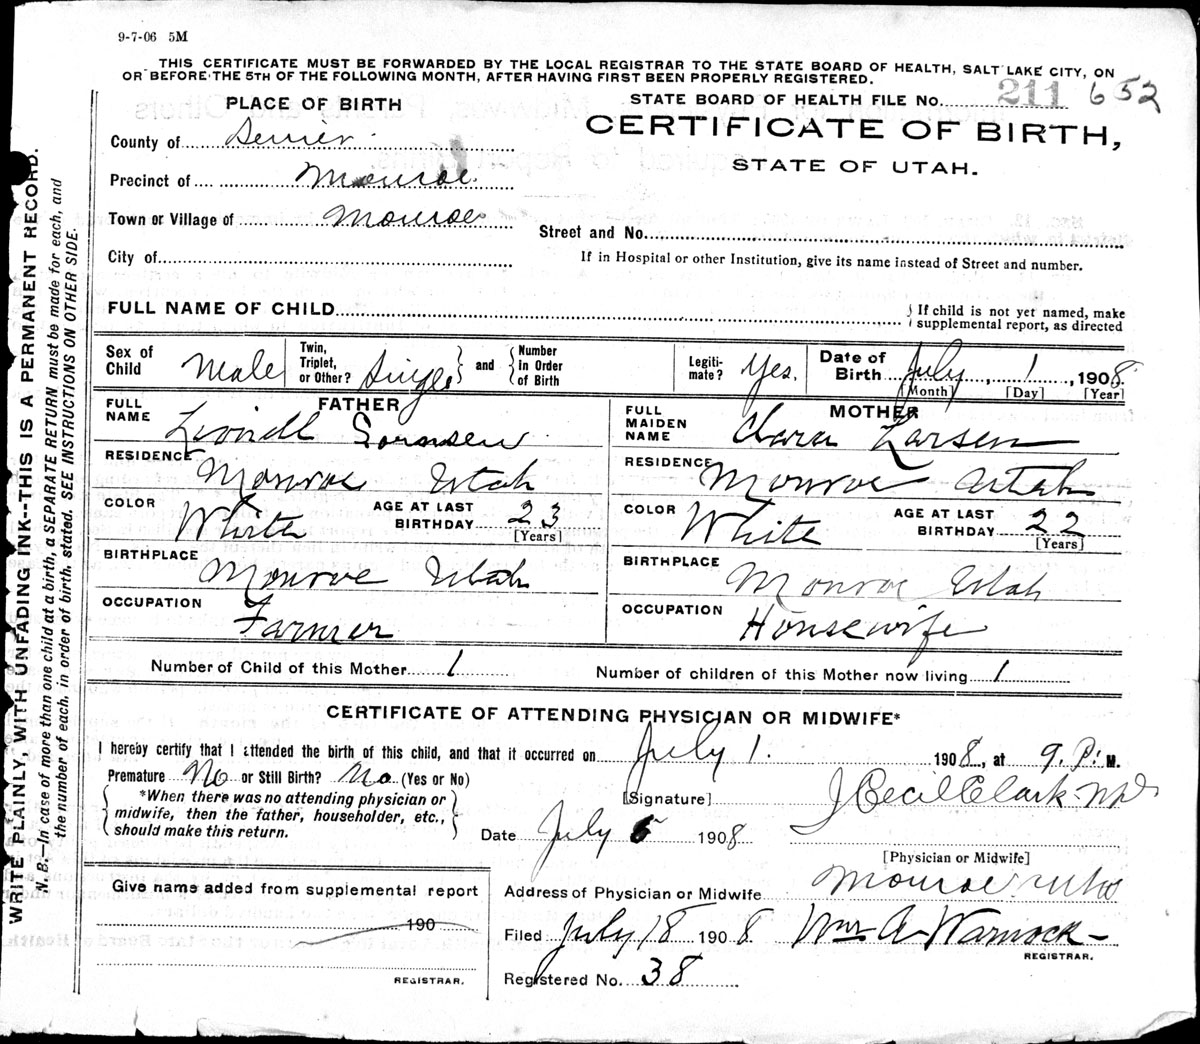 9-7-06 5M
THIS CERTIFICATE MUST BE FORWARDED BY THE LOCAL REGISTRAR TO THE STATE BOARD OF HEALTH, SALT LAKE CITY, ON
OR BEFORE THE 5TH OF THE FOLLOWING MONTH, AFTER HAVING FIRST BEEN PROPERLY REGISTERED.
PLACE OF BIRTH
STATE BOARD OF HEALTH FILE No. 211 652
CERTIFICATE OF BIRTH,
STATE OF UTAH.
County of Sevier
Precinct of Monroe
Town or Village of Monroe
Street and No.
City of
If in Hospital or other Institution, give its name instead of Street and number.
FULL NAME OF CHILD
{ If child is not yet named, make
supplemental report, as directed
Sex of Child Male
Twin, Triplet, or Other? Single } and { Number In Order of Birth
Legiti-mate? Yes.
Date of Birth July, 1, 1908.
[Month] [Day] [Year]
FATHER
FULL NAME Sornsen
RESIDENCE Monroe Utah
COLOR White AGE AT LAST BIRTHDAY 23
[Years]
BIRTHPLACE Monroe Utah
OCCUPATION Farmer
MOTHER
FULL MAIDEN NAME Clara Larsen
RESIDENCE Monroe Utah
COLOR White AGE AT LAST BIRTHDAY 22
[Years]
BIRTHPLACE Monroe Utah
OCCUPATION Housewife
Number of Child of this Mother 1
Number of children of this Mother now living 1
CERTIFICATE OF ATTENDING PHYSICIAN OR MIDWIFE*
I hereby certify that I attended the birth of this child, and that it occurred on July 1. 1908, at 9. P. M.
Premature No or Still Birth? No (Yes or No)
{ *When there was no attending physician or
midwife, then the father, householder, etc.,
should make this return. }
[Signature] J Cecil Clark MD
Date July 5 1908
[Physician or Midwife]
Give name added from supplemental report
190
REGISTRAR.
Address of Physician or Midwife Monroe Utah
Filed July 18 1908. Wm A Warnock
REGISTRAR.
Registered No. 38
WRITE PLAINLY, WITH UNFADING INK--THIS IS A PERMANENT RECORD.
N. B.--In case of more than one child at a birth, a SEPARATE RETURN must be made for each, and
the number of each, in order of birth, stated. SEE INSTRUCTIONS ON OTHER SIDE.